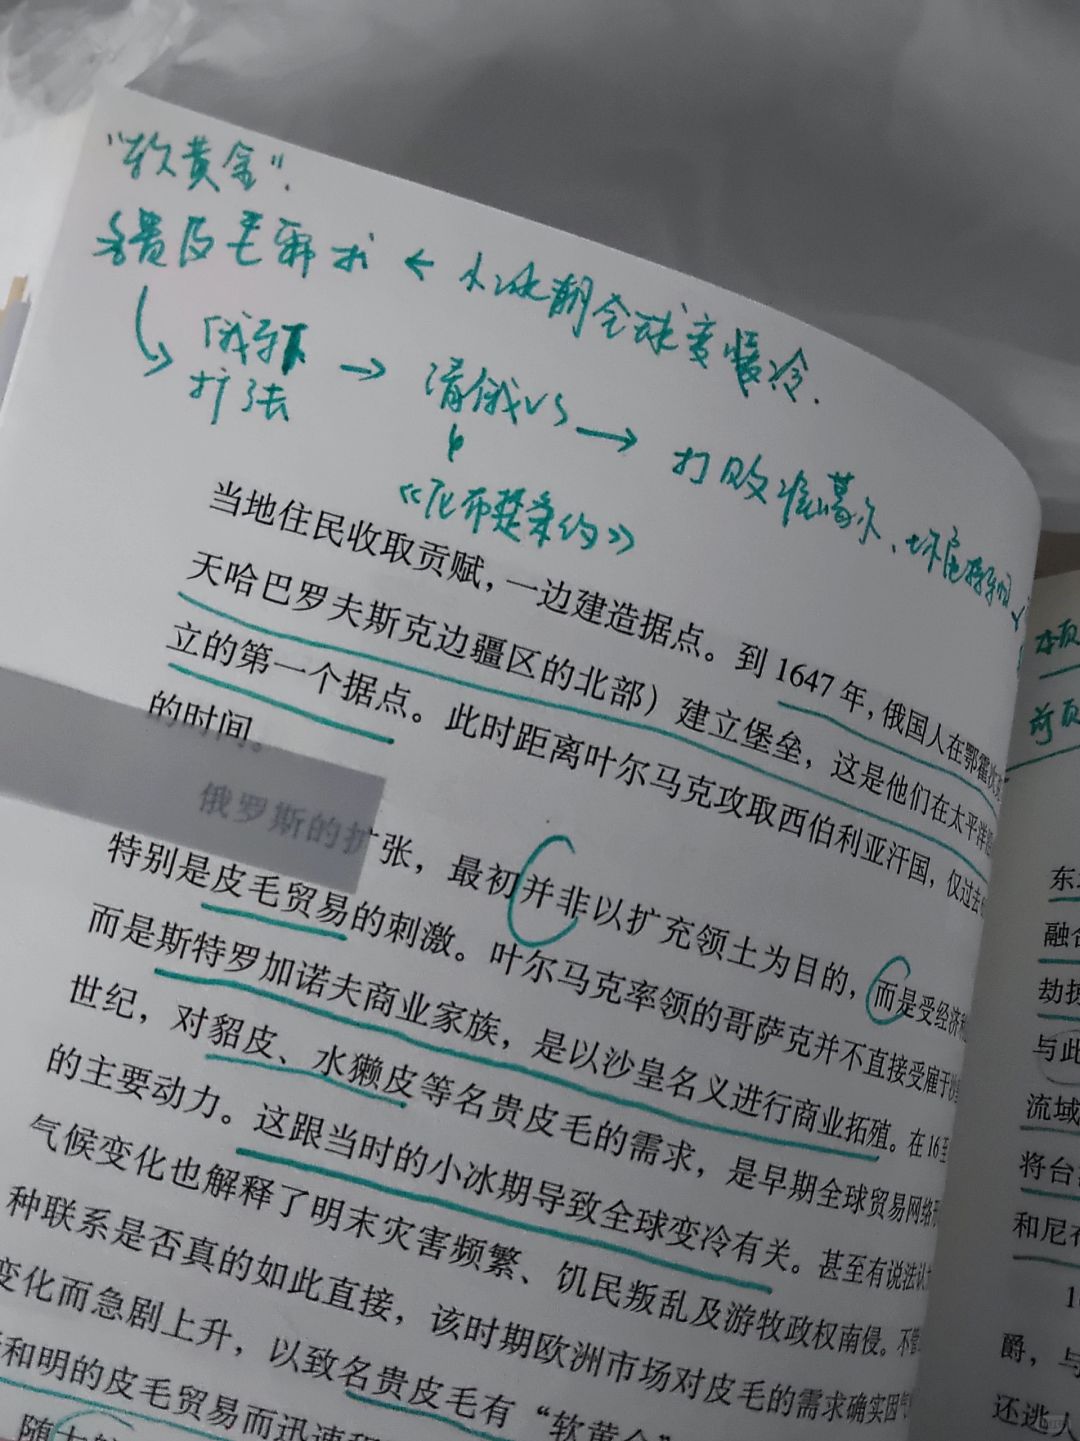 “软黄金”.
名贵皮毛需求 ← 小冰期全球变暖冷.
俄 → 清俄vs → 打败准噶尔、
扩张
《尼布楚条约》
当地住民收取贡赋，一边建造据点。到1647年，俄国人在鄂霍次克
天哈巴罗夫斯克边疆区的北部）建立堡垒，这是他们在太平洋
立的第一个据点。此时距离叶尔马克攻取西伯利亚汗国，仅过去
的时间。
俄罗斯的扩张，最初并非以扩充领土为目的，而是受经济
特别是皮毛贸易的刺激。叶尔马克率领的哥萨克并不直接受雇于沙
而是斯特罗加诺夫商业家族，是以沙皇名义进行商业拓殖。在16至
世纪，对貂皮、水獭皮等名贵皮毛的需求，是早期全球贸易网络
的主要动力。这跟当时的小冰期导致全球变冷有关。甚至有说法认
气候变化也解释了明末灾害频繁、饥民叛乱及游牧政权南侵。不管
种联系是否真的如此直接，该时期欧洲市场对皮毛的需求确实因气
变化而急剧上升，以致名贵皮毛有“软黄金”
和明的皮毛贸易而迅速
随
本页
前页
东
融合
劫掠
与此
流域
将台
和尼布
1
爵，与
还逃人